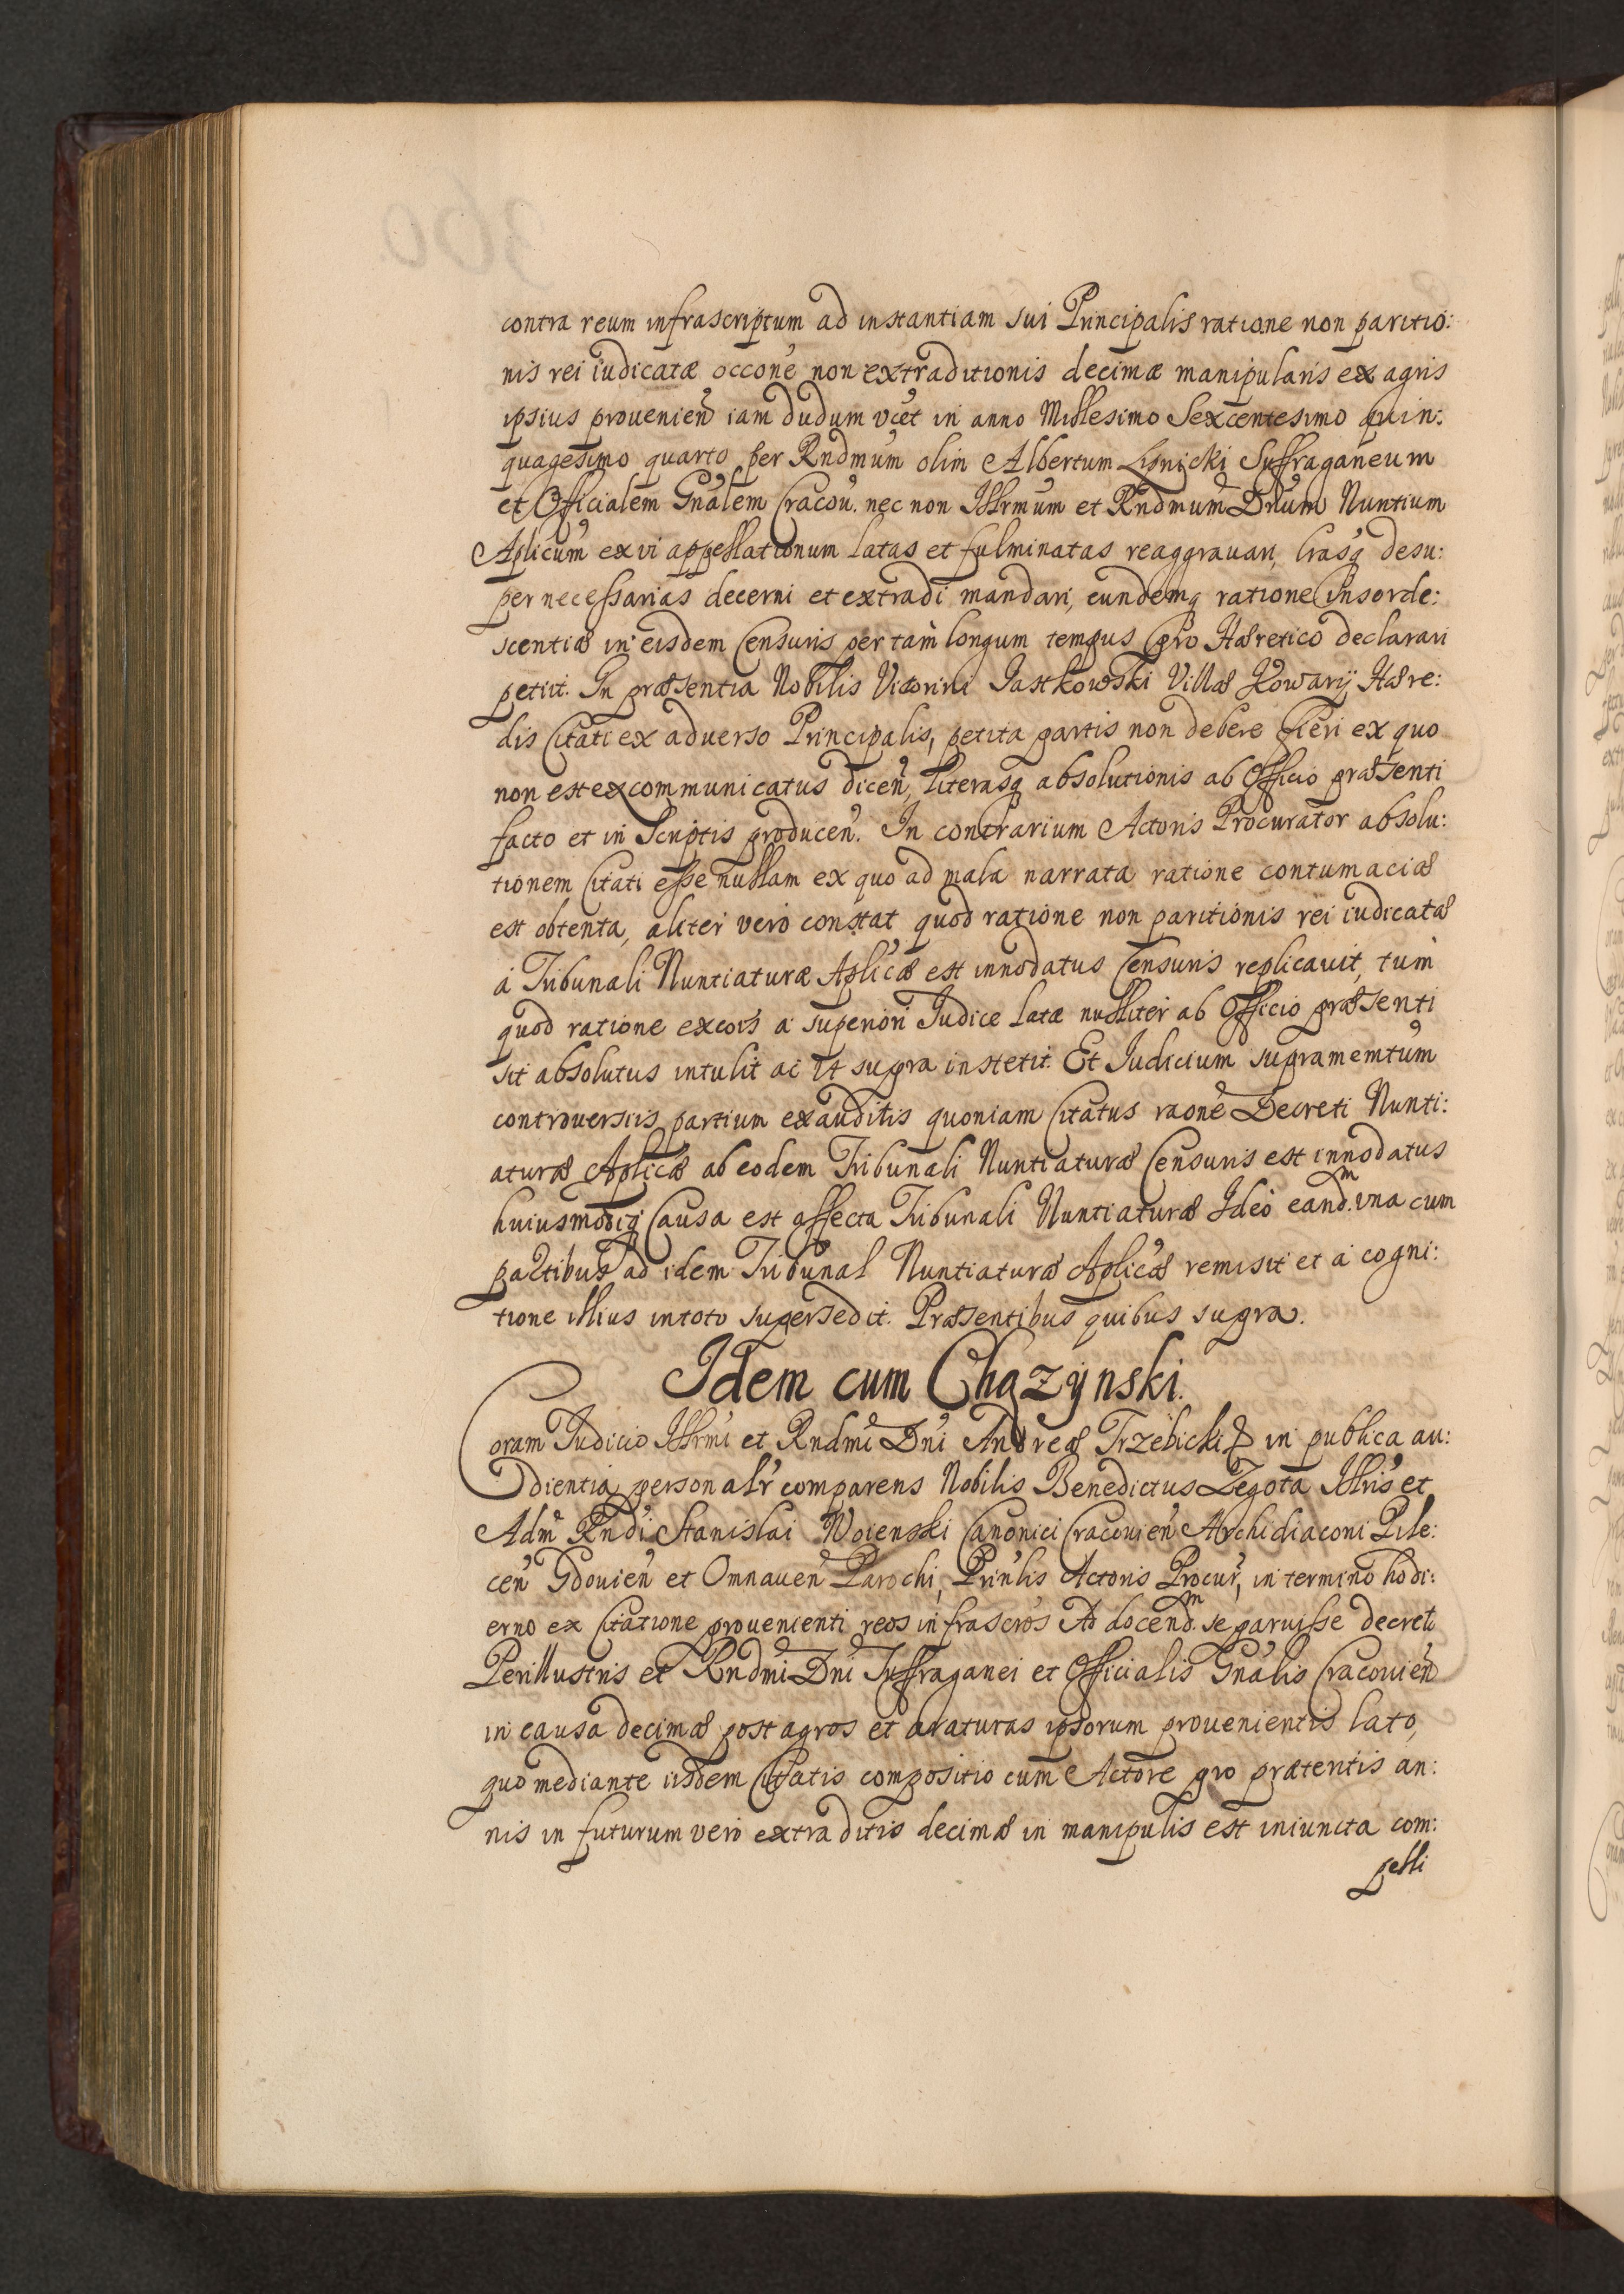 contra reum infrascriptum ad instantiam sui Principalis ratione non paritio:
nis rei iudicatæ occone non extraditionis decimæ manipularis ex agris
ipsius provenien iam dudum vcet in anno Millesimo Sexcentesimo quin:
quagesimo quarto per Rndmum olim Albertum Lipnicki Suffraganeum
et Officialem Gnalem Cracou. nec non Illrmum et Rndmum Dnum Nuntium
Aplicum ex vi appellationum latas et fulminatas reaggrauari, lrasq desu:
per necessarias decerni et extradi mandari, eundemq ratione Insorde:
scentiæ in eisdem Censuris per tam longum tempus pro Hæretico declarari
petiit. In præsentia Nobilis Victorini Jastkowski Villæ Kowary Hære:
dis Citati ex aduerso Principalis, petita partis non debere fieri ex quo
non est excommunicatus dicen, literasq absolutionis ab Officio præsenti
facto et in Scriptis producen. In contrarium Actoris Procurator absolu:
tionem Citati esse nullam ex quo ad mala narrata ratione contumaciæ
est obtenta, aliter vero constat quod ratione non paritionis rei iudicatæ
a Tribunali Nuntiaturæ Aplicæ est innodatus Censuris replicauit, tum
quod ratione excois a superiori Judice latæ nulliter ab Officio præsenti
sit absolutus intulit ac ut supra institit. Et Judicium supramemtum
controuersiis partium exauditis quoniam Citatus raone Decreti Nunti:
aturæ Aplicæ ab eodem Tribunali Nuntiaturæ Censuris est innodatus
huiusmodiq Causa est affecta Tribunali Nuntiaturæ Ideo eand.m vna cum
partibus ad idem Tribunal Nuntiaturæ Aplicæ remisit et a cogni:
tione illius in toto supersedit. Præsentibus quibus supra.
Idem cum Chązynski.
Coram Judicio Illrmi et Rndmi Dni Andreæ Trzebicki in publica au:
dientia personalr comparens Nobilis Benedictus Zegota Illris et
Adm Rndi Stanislai Woienski Canonici Cracouien Archidiaconi Pile:
cen Gdouien et Omnauen Parochi, Prinlis Actoris Procur, in termino hodi:
erno ex Citatione prouenienti reos infrascros Ad docend.m se paruisse decreto
Perillustris et Rndmi Dni Suffraganei et Officialis Gnalis Cracouien
in causa decimæ post agros et araturas ipsorum prouenientis lato,
quo mediante iisdem Citatis compositio cum Actore pro prætentis an:
nis in futurum vero extraditis decimæ in manipulis est iniuncta com:
pelli